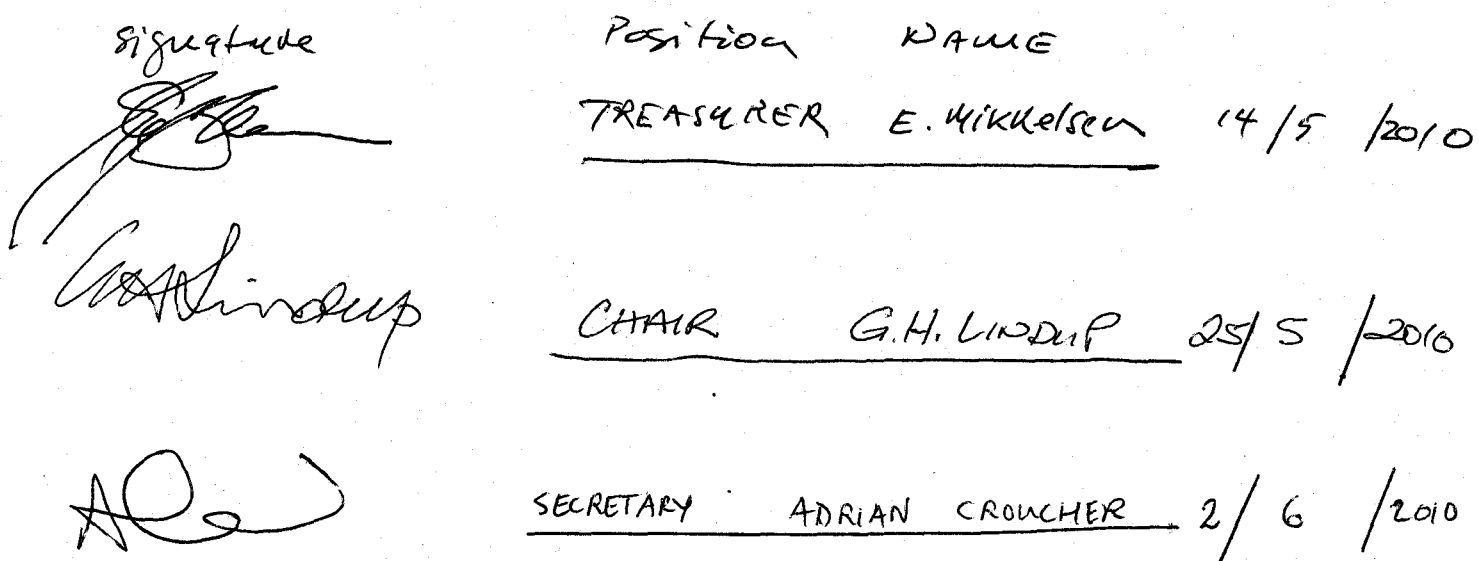 signature Position NAME
TREASURER E. Mikkelsen 14/5/2010
GHLindup CHAIR G.H. LINDUP 25/5/2010
SECRETARY ADRIAN CROUCHER 2/6/2010